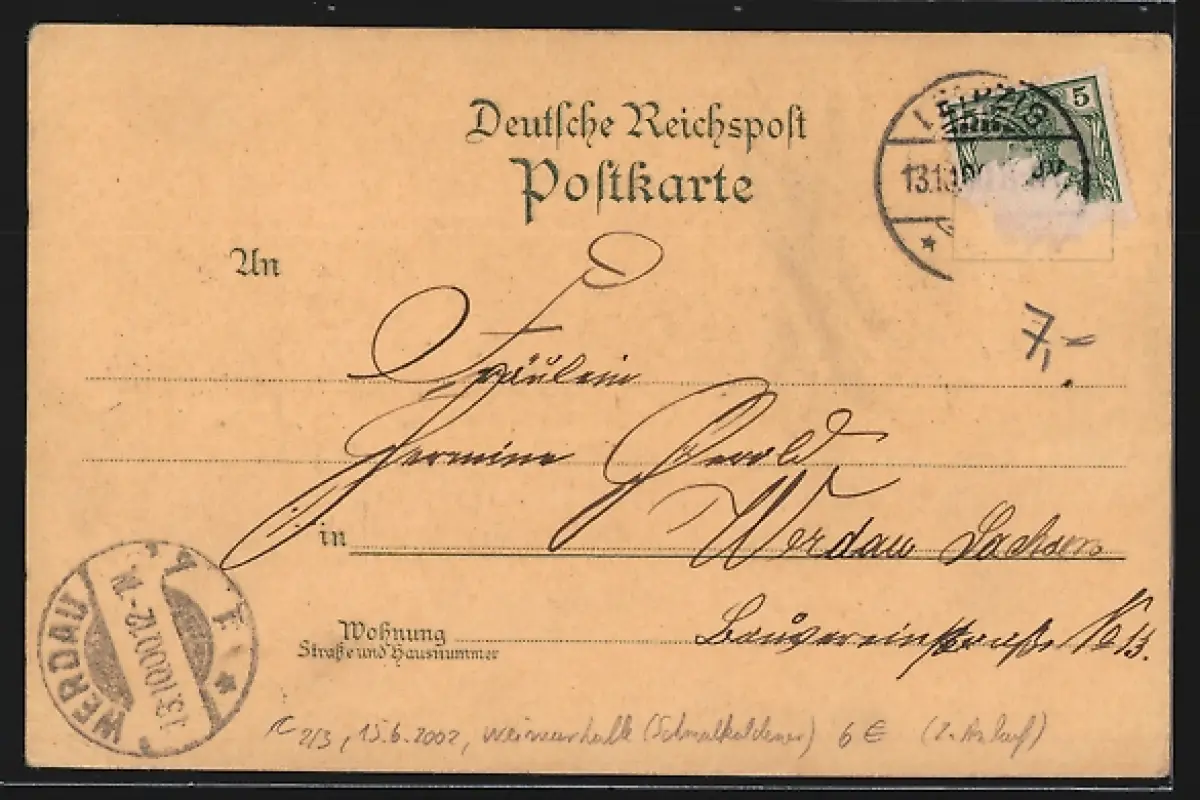 Deutsche Reichspost
Postkarte
LEIPZIG
5
13.10
An
7,-
Fräulein
Hermine Gerold
in Werdau Sachsen
Wohnung
Straße und Hausnummer
Bauvereinstraße No 13.
WERDAU
13.10.00.12-N.
2/3, 15.6.2002, Weimarhalle (Schmalkaldener) 6 € (2. Anlauf)